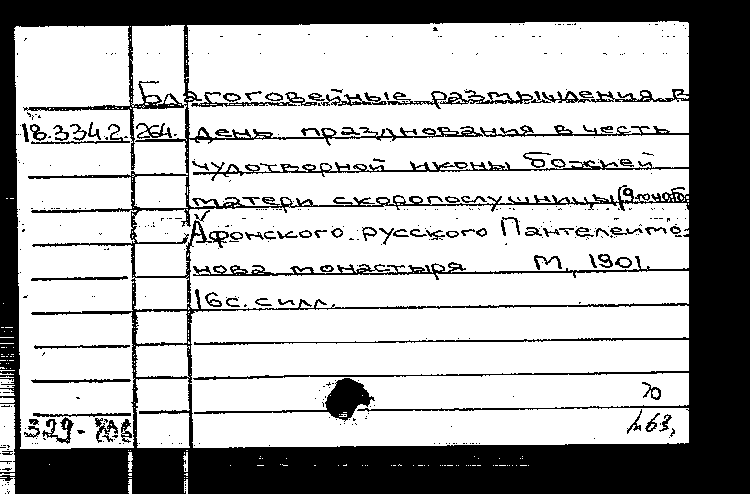 Благоговейные размышления в
18.334.2. 264. день празднования в честь
чудотворной иконы божией
матери скоропослушницы (9 нояб
Афонского русского Пантелеймо-
нова монастыря М., 1901.
16с. с илл.
329-